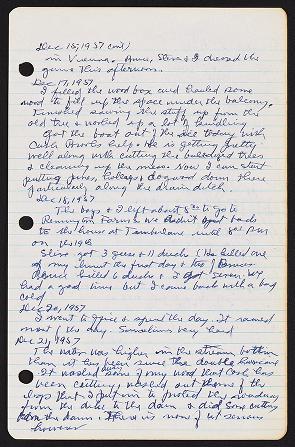 Dec 15, 1957 con't)
in Vienna. Anne, Steve & I cleaned the
guns this afternoon.
Dec 17, 1957
I filled the wood box and hauled some
wood to fill up the space under the balcony.
Finished sawing the stuff up from the
old tree & worked up a lot of kindling
Got the boat out of the ice today with
help. He is getting pretty
well along with cutting the bulldozed trees
& cleaning up the mess. Now I can start
putting pines, hollies & dogwood down there
particularly along the drain ditch.
Dec 18, 1957
The boys & I left about 5 to go to
Remington Farms. We didn't get back
to the house at until 9:00 PM
on the 19th
Steve got 3 geese & 11 ducks (He killed one
of my the first day & the
killed 6 ducks & I got seven. We
had a good time but I came back with a bad
cold
Dec 20, 1957
I went to & spent the day. It rained
most of the day. Sometimes very hard
Dec 21, 1957
The water was higher in the stream bottom
than it has been since the double hurricane
It washed away some of my wood that Cash has
been cutting, washed out of the
logs that I put in to protect the
from the dike to the dam & did some cutting
the dam. There is none of it serious
however